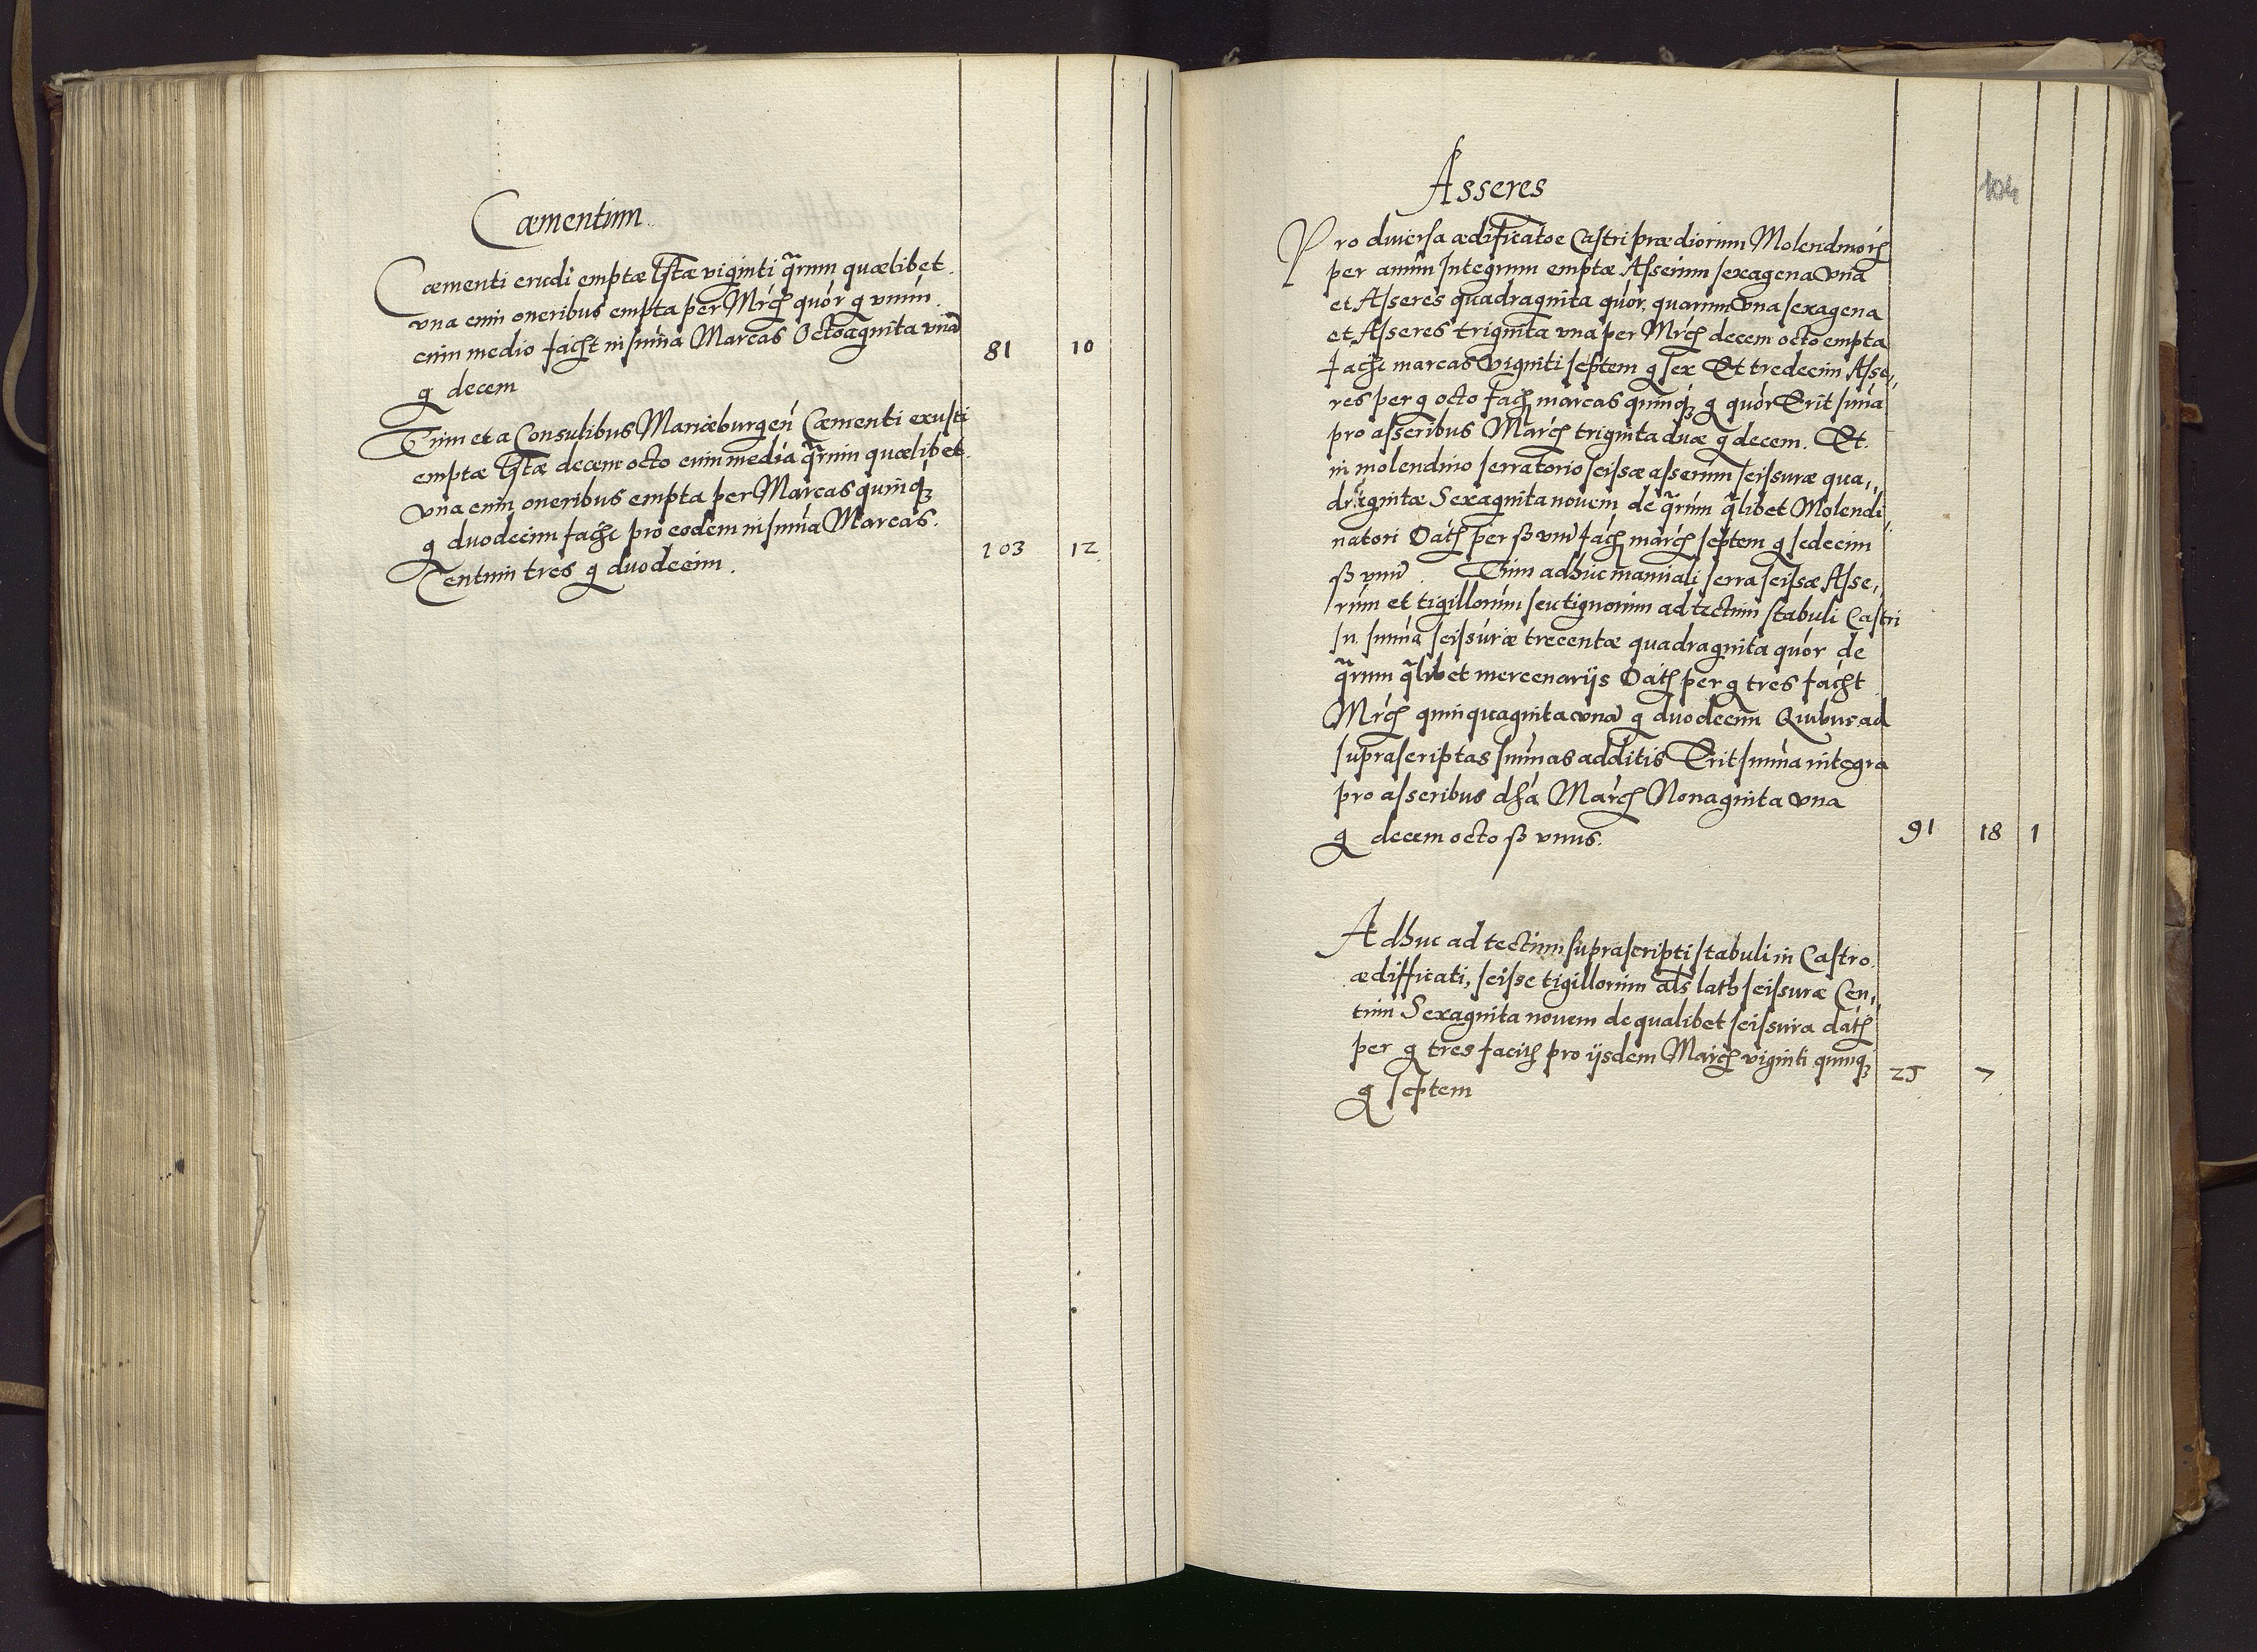 Cæmentum
Cæmenti crudi emptæ lstæ viginti qrum quælibet
vna cum oneribus empta per Mrcħ quór g vnum
cum medio faciħt in sum̄a Marcas Octoaginta vnā
g decem
81 10
Tum et a Consulibus Mariæburgeń Cæmenti exusti
emptæ lstæ decem octo cum media qrum quælibet
vna cum oneribus empta per Marcas quinqꝫ
g duodecim faciħt pro eodem in sum̄a Marcas
Centum tres g duodecim.
103 12
104
Asseres
Pro diuersa ædificatōe Castri prædiorum Molendinorū
per annum Integrum emptæ Asserum sexagena vna
et Asseres quadraginta quór, quarum vna sexagena
et Asseres triginta vna per Mrcħ decem octo empta
faciħt marcas viginti septem g sex Et tredecim Asse,,
res per g octo faciħt marcas quinqꝫ g quór Erit sum̄a
pro asseribus Marcħ triginta duæ g decem. Et
in molendino serratorio scissæ asserum scissuræ qua,,
dringintæ Sexaginta nouem de qrum qlibet Molendi,,
natori Datħ per ß vnū faciħt marcħ septem g sedecim
ß vnū. Tum adhuc manuali serra scissæ Asse,,
rum et tigillorum seu tignorum ad tectum stabuli Castri
In sum̄a scissuræ trecentæ quadraginta quór de
qrum qlibet mercenarijs Datħ per g tres faciħt
Mrcħ quinquaginta vnā g duodecim Quibus ad
suprascriptas sum̄as additis Erit sum̄a integra
pro asseribus dħa Marcħ Nonaginta vna
g decem octo ß vnus.
91 18 1
Adhuc ad tectum suprascripti stabuli in Castro
ædifficati, scisse tigillorum als lath scissuræ Cen,,
tum Sexaginta nouem de qualibet scissura datħ
per g tres faciħt pro ijsdem Marcħ viginti quinqꝫ
g septem
25 7